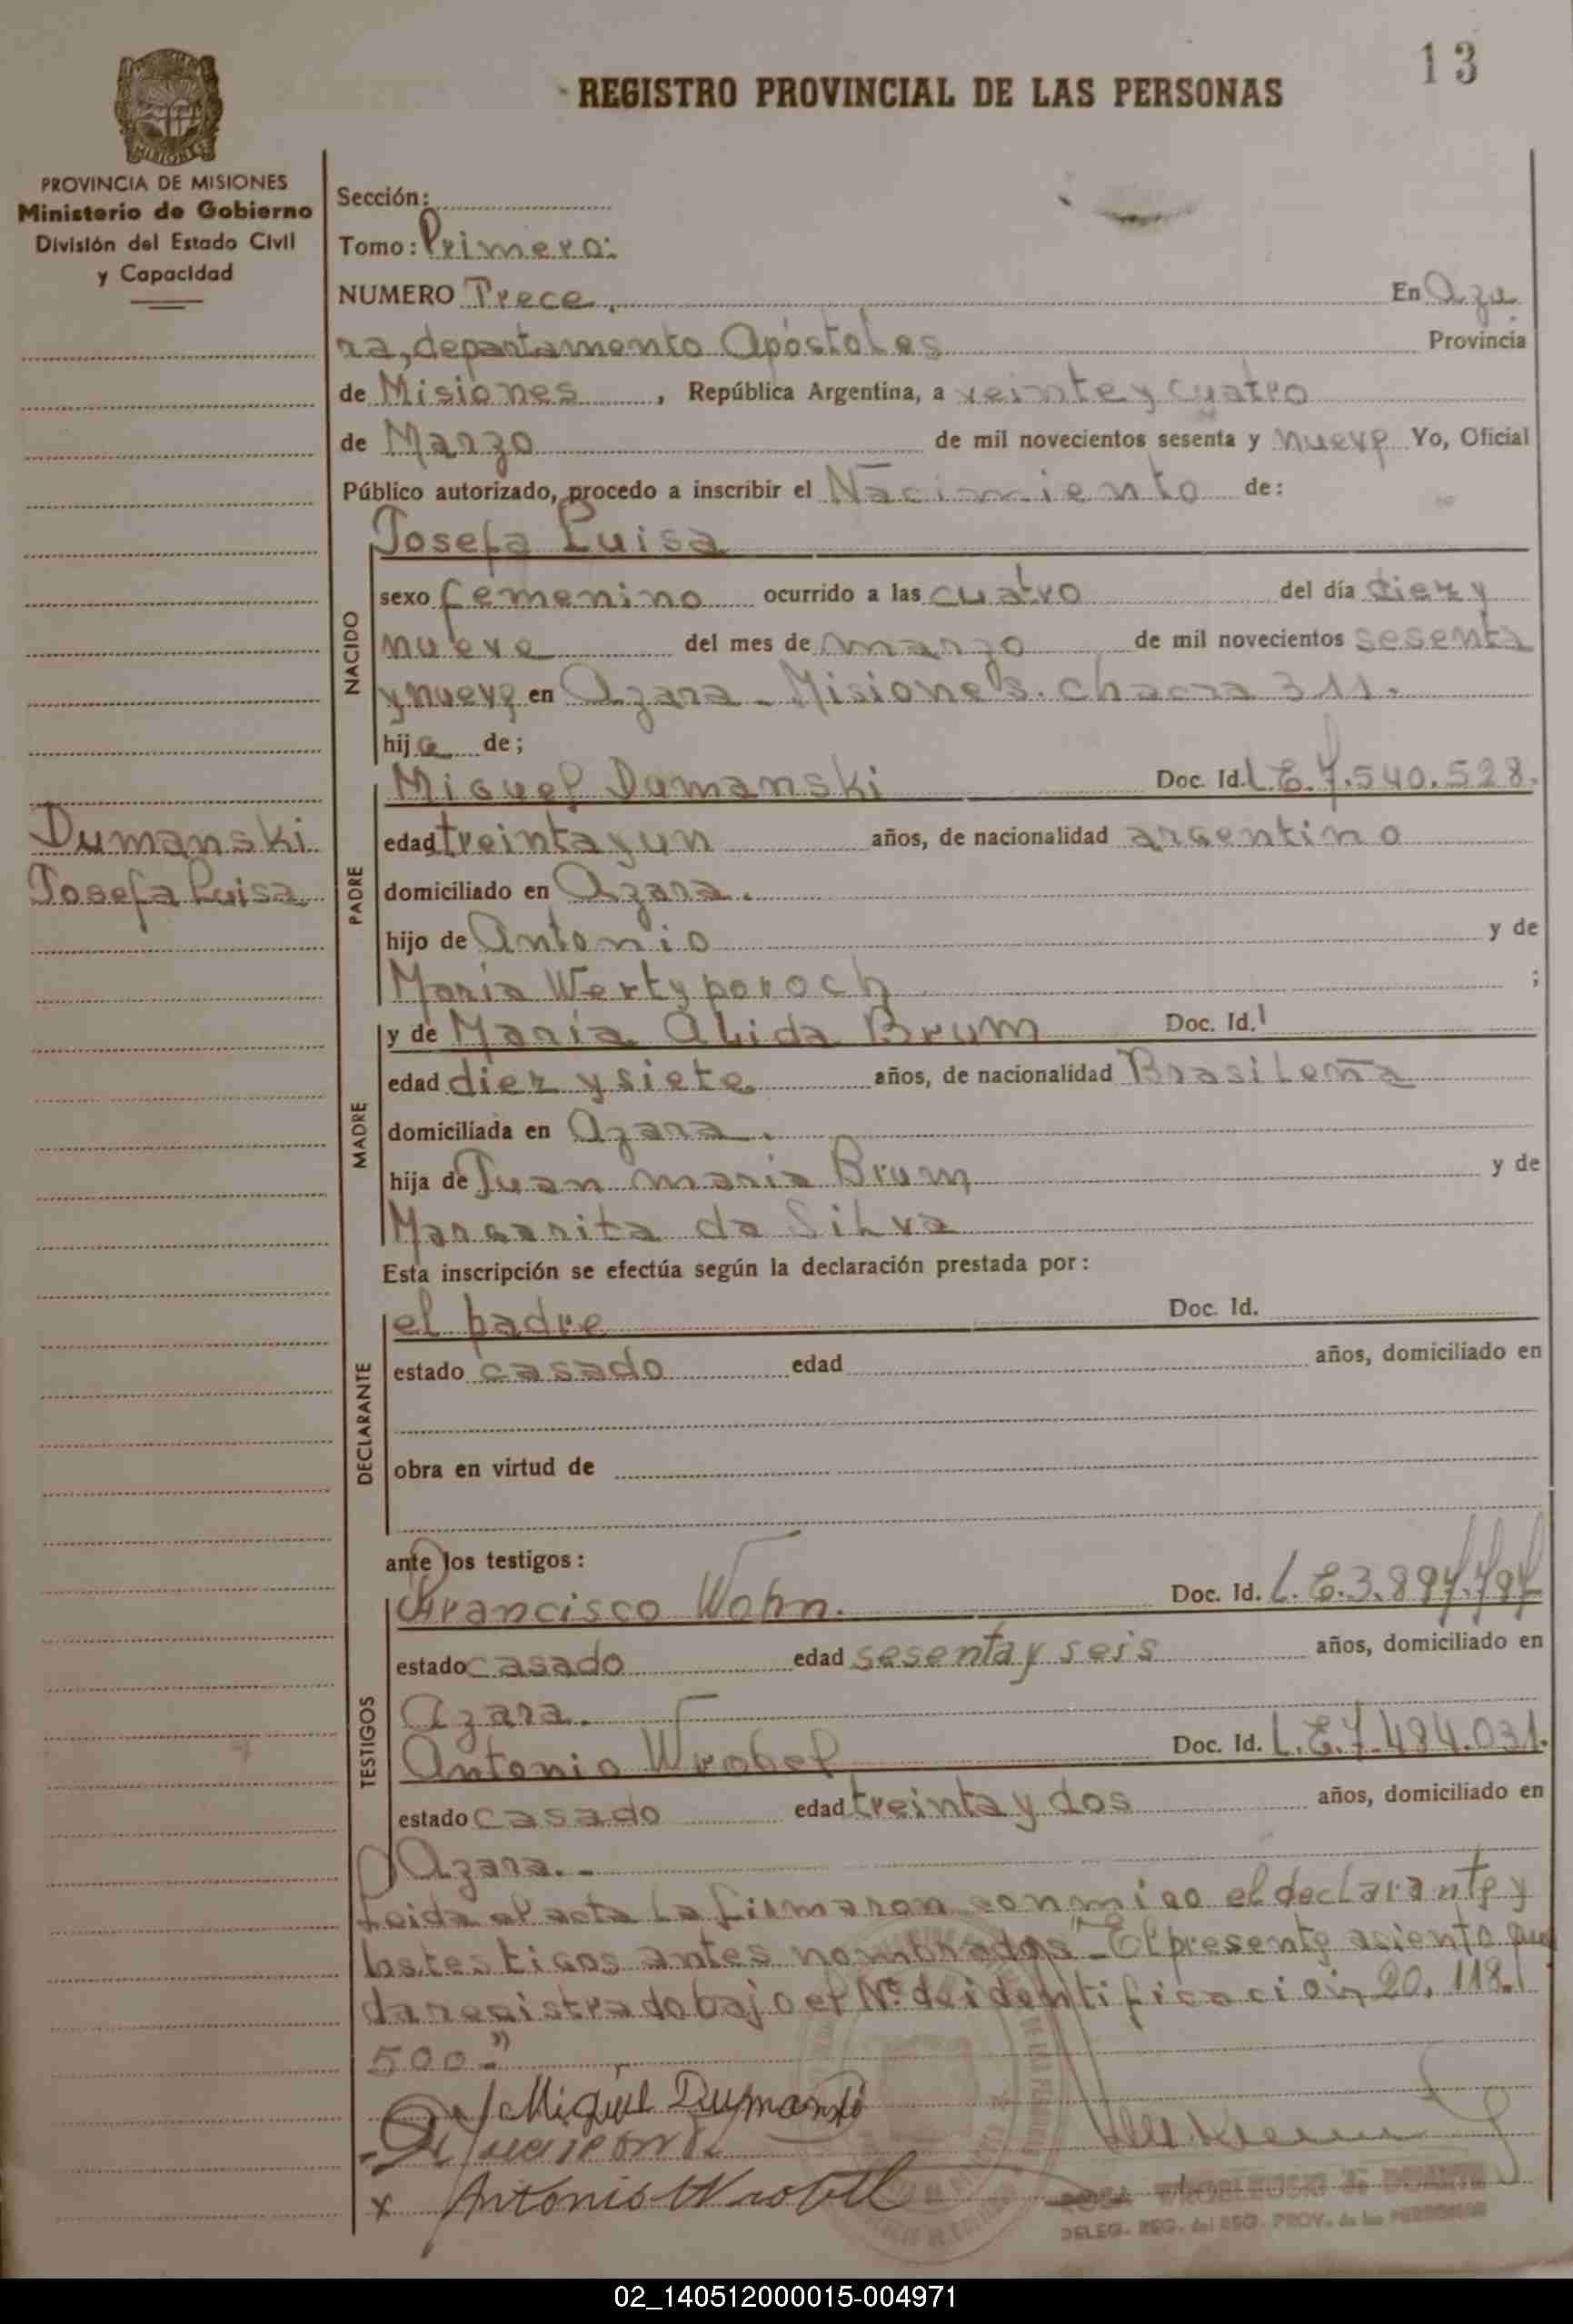 13
REGISTRO PROVINCIAL DE LAS PERSONAS
MISIONES
PROVINCIA DE MISIONES
Ministerio de Gobierno
División del Estado Civil
y Capacidad
Dumanski
Josefa Luisa
Sección:
Tomo: Primero:
NUMERO Trece, En Aza
ra, departamento Apóstoles Provincia
de Misiones, República Argentina, a veinte y cuatro
de Marzo de mil novecientos sesenta y nueve Yo, Oficial
Público autorizado, procedo a inscribir el Nacimiento de:
Josefa Luisa
NACIDO
sexo femenino ocurrido a las cuatro del día diez y
nueve del mes de marzo de mil novecientos sesenta
y nueve en Azara - Misiones. chacra 311.
hija de;
PADRE
Miguel Dumanski Doc. Id. L.E. 7.540.528.
edad treinta y un años, de nacionalidad argentino
domiciliado en Azara.
hijo de Antonio y de
María Wertyporoch ;
MADRE
y de María Alida Brum Doc. Id.
edad diez y siete años, de nacionalidad Brasileña
domiciliada en Azara.
hija de Juan maria Brum y de
Margarita da Silva
Esta inscripción se efectúa según la declaración prestada por:
DECLARANTE
el padre Doc. Id.
estado casado edad años, domiciliado en
obra en virtud de
ante los testigos:
TESTIGOS
Francisco Wohn. Doc. Id. L.E. 3.897.797
estado casado edad sesenta y seis años, domiciliado en
Azara.
Antonio Wrobel Doc. Id. L.E. 7.484.031.
estado casado edad treinta y dos años, domiciliado en
Azara.-
Leida el acta la firmaron conmigo el declarante y
los testigos antes nombrados "El presente asiento que
da registrado bajo el Nº de identificación 20.118.
500."
Miguel Dumanski
x Antonio Wrobel
DELEG. REG. del REG. PROV. de las PERSONAS
02_140512000015-004971